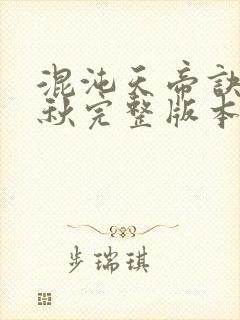 混沌天帝诀
秋完整版本
步瑞琪